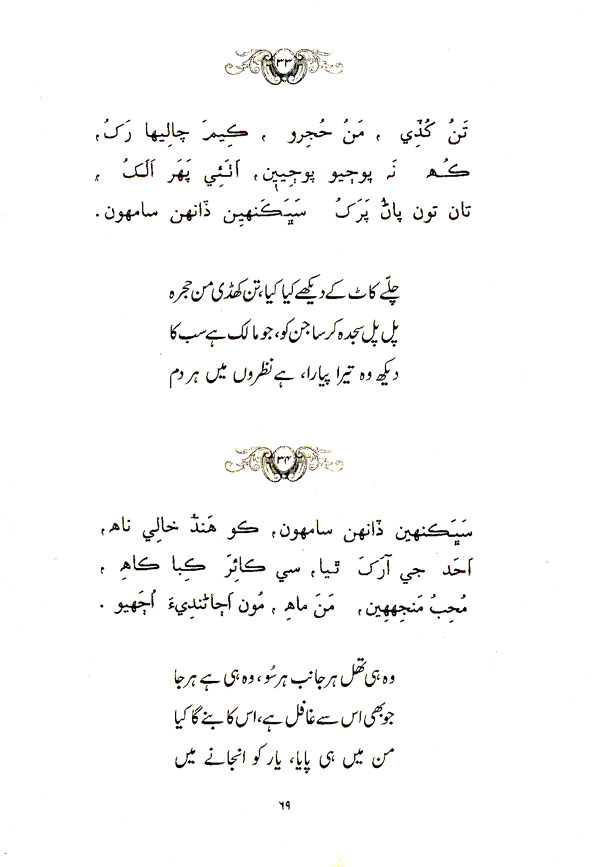 ۳۳
تَنُ کُڏِي ، مَنُ حُجِرو ، ڪِيمَ چالِيها رَکُ،
ڪُھ نَہ پوڄيو پوڄِيين، اَٺئِي پَهَر اَلَکُ ،
تان تون پاڻ پَرَکُ سَڀَڪَنھِين ڏانھن سامھون.
چلّے کاٹ کے دیکھے کیا کیا، تن کھڈی من حجرہ
پل پل سجدہ کر ساجن کو، جو مالک ہے سب کا
دیکھ وہ تیرا پیارا، ہے نظروں میں ہر دم
۳۴
سَڀَڪنھين ڏانھن سامھون، ڪو هَنڌُ خالِي ناھ،
اَحَد جي آرَکَ ٿيا، سي ڪائِرَ ڪِبا ڪاھِ ،
مُحِبُ مَنجِھِين، مَنَ ماھِ، مُون اَڄاڻندِيءَ اُڄَھيو .
وہ ہی تھل ہر جانب ہر سُو، وہ ہی ہے ہر جا
جو بھی اس سے غافل ہے، اس کا بنے گا کیا
من میں ہی پایا، یار کو انجانے میں
٦٩